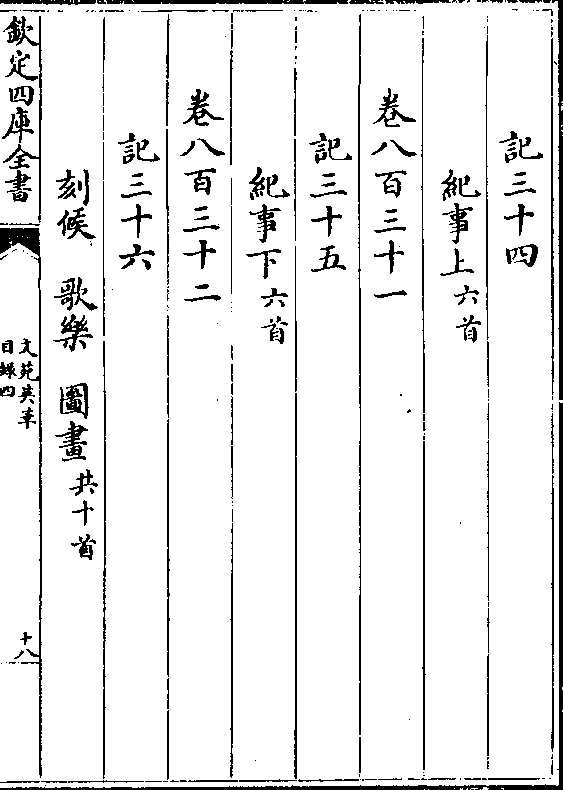 記三十四
紀事上六首
卷八百三十一
記三十五
紀事下六首
卷八百三十二
記三十六
刻候 歌樂 圖畫共十首
欽定四庫全書
文苑英華
目録四
十八